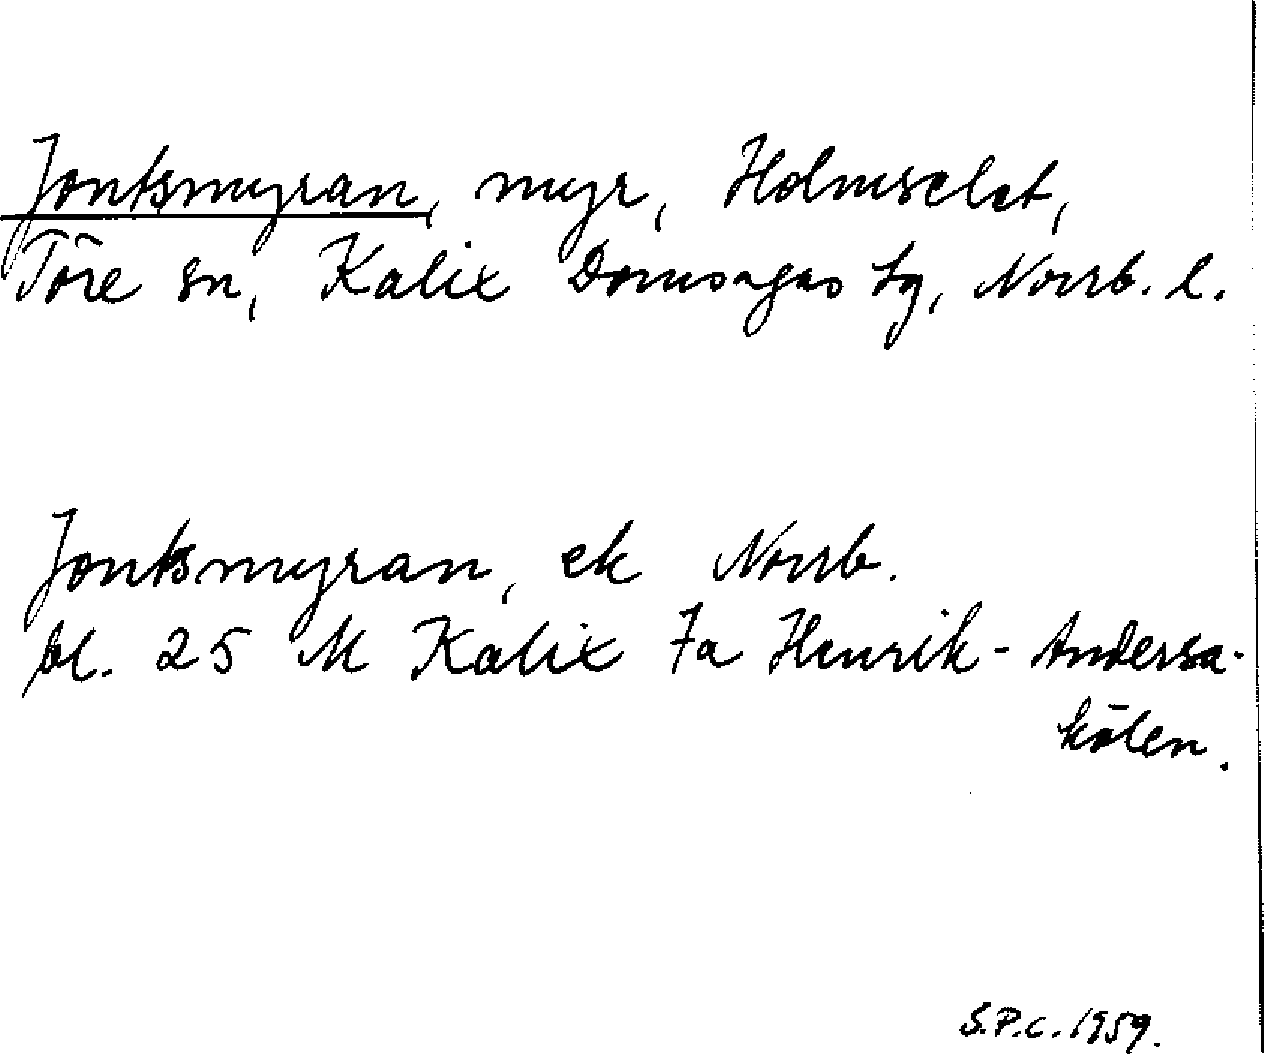 Jontsmyran, myr, Holmselet,
Töre sn, Kalix Domsagas tg, Norrb. l.
Jontsmyran, ek Norrb.
bl. 25 M Kalix 7a Henrik-Andersa-
kölen.
S.P.C. 1959.